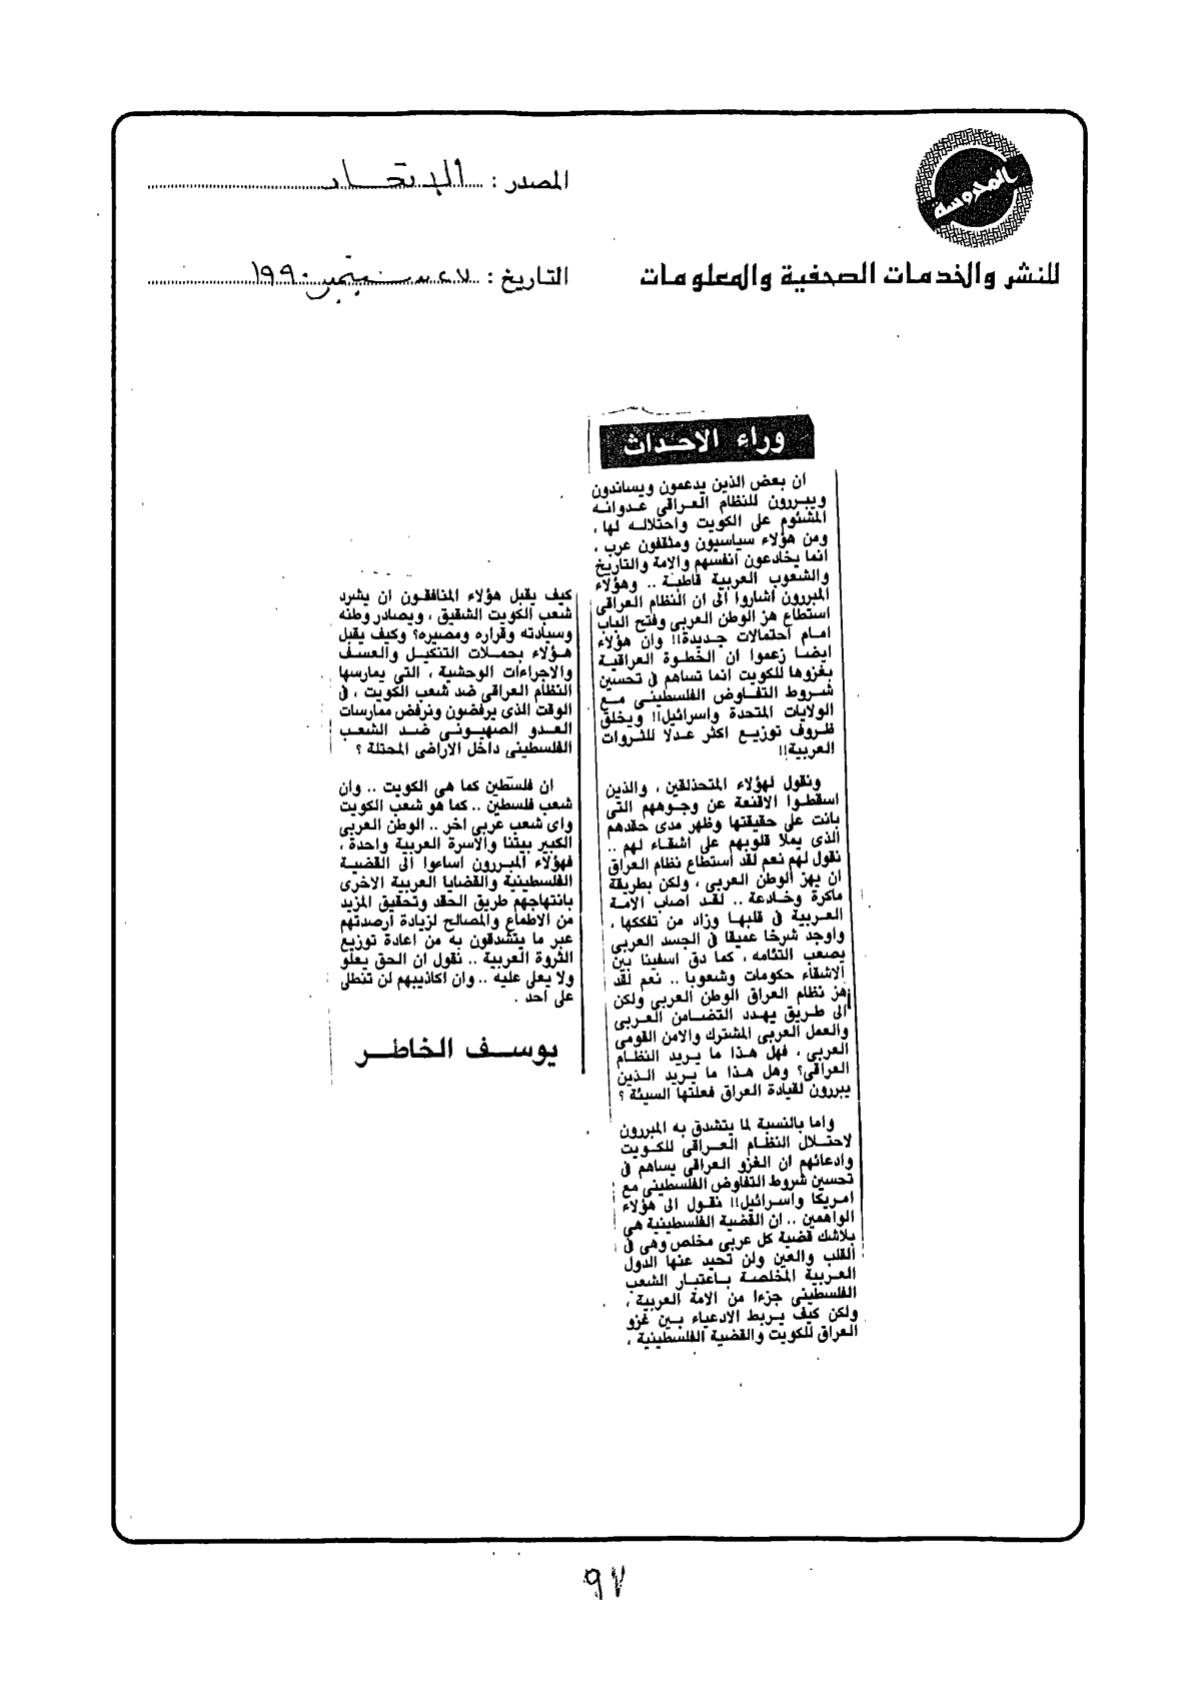 المحروسة
للنشر والخدمات الصحفية والمعلومات
المصدر : الاتحاد
التاريخ : ٢٧ سبتمبر ١٩٩٠
وراء الاحداث
ان بعض الذين يدعمون ويساندون
ويبررون للنظام العراقى عدوانه
المشئوم على الكويت واحتلاله لها ،
ومن هؤلاء سياسيون ومثقفون عرب ،
انما يخادعون انفسهم والامة والتاريخ
والشعوب العربية قاطبة .. وهؤلاء
المبررون اشاروا الى ان النظام العراقى
استطاع هز الوطن العربى وفتح الباب
امام احتمالات جديدة!! وان هؤلاء
ايضا زعموا ان الخطوة العراقية
بغزوها للكويت انما تساهم فى تحسين
شروط التفاوض الفلسطينى مع
الولايات المتحدة واسرائيل!! ويخلق
ظروف توزيع اكثر عدلا للثروات
العربية!!
ونقول لهؤلاء المتحذلقين ، والذين
اسقطوا الاقنعة عن وجوههم التى
بانت على حقيقتها وظهر مدى حقدهم
الذى يملا قلوبهم على اشقاء لهم ..
نقول لهم نعم لقد استطاع نظام العراق
ان يهز الوطن العربى ، ولكن بطريقة
ماكرة وخادعة .. لقد اصاب الامة
العربية فى قلبها وزاد من تفككها ،
واوجد شرخا عميقا فى الجسد العربى
يصعب التئامه ، كما دق اسفينا بين
الاشقاء حكومات وشعوبا .. نعم لقد
هز نظام العراق الوطن العربى ولكن
الى طريق يهدد التضامن العربى
والعمل العربى المشترك والامن القومى
العربى ، فهل هذا ما يريد النظام
العراقى؟ وهل هذا ما يريد الذين
يبررون لقيادة العراق فعلتها السيئة ؟
واما بالنسبة لما يتشدق به المبررون
لاحتلال النظام العراقى للكويت
وادعائهم ان الغزو العراقى يساهم فى
تحسين شروط التفاوض الفلسطينى مع
امريكا واسرائيل!! نقول الى هؤلاء
الواهمين .. ان القضية الفلسطينية هى
بلاشك قضية كل عربى مخلص وهى فى
القلب والعين ولن تحيد عنها الدول
العربية المخلصة باعتبار الشعب
الفلسطينى جزءا من الامة العربية ،
ولكن كيف يربط الادعياء بين غزو
العراق للكويت والقضية الفلسطينية ،
كيف يقبل هؤلاء المنافقون ان يشرد
شعب الكويت الشقيق ، ويصادر وطنه
وسيادته وقراره ومصيره؟ وكيف يقبل
هؤلاء بحملات التنكيل والعسف
والاجراءات الوحشية ، التى يمارسها
النظام العراقى ضد شعب الكويت ، فى
الوقت الذى يرفضون ونرفض ممارسات
العدو الصهيونى ضد الشعب
الفلسطينى داخل الاراضى المحتلة ؟
ان فلسطين كما هى الكويت .. وان
شعب فلسطين .. كما هو شعب الكويت
واى شعب عربى اخر .. الوطن العربى
الكبير بيتنا والاسرة العربية واحدة ،
فهؤلاء المبررون اساءوا الى القضية
الفلسطينية والقضايا العربية الاخرى
بانتهاجهم طريق الحقد وتحقيق المزيد
من الاطماع والمصالح لزيادة ارصدتهم
عبر ما يتشدقون به من اعادة توزيع
الثروة العربية .. نقول ان الحق يعلو
ولا يعلى عليه .. وان اكاذيبهم لن تنطلى
على احد .
يوسف الخاطر
٩٧